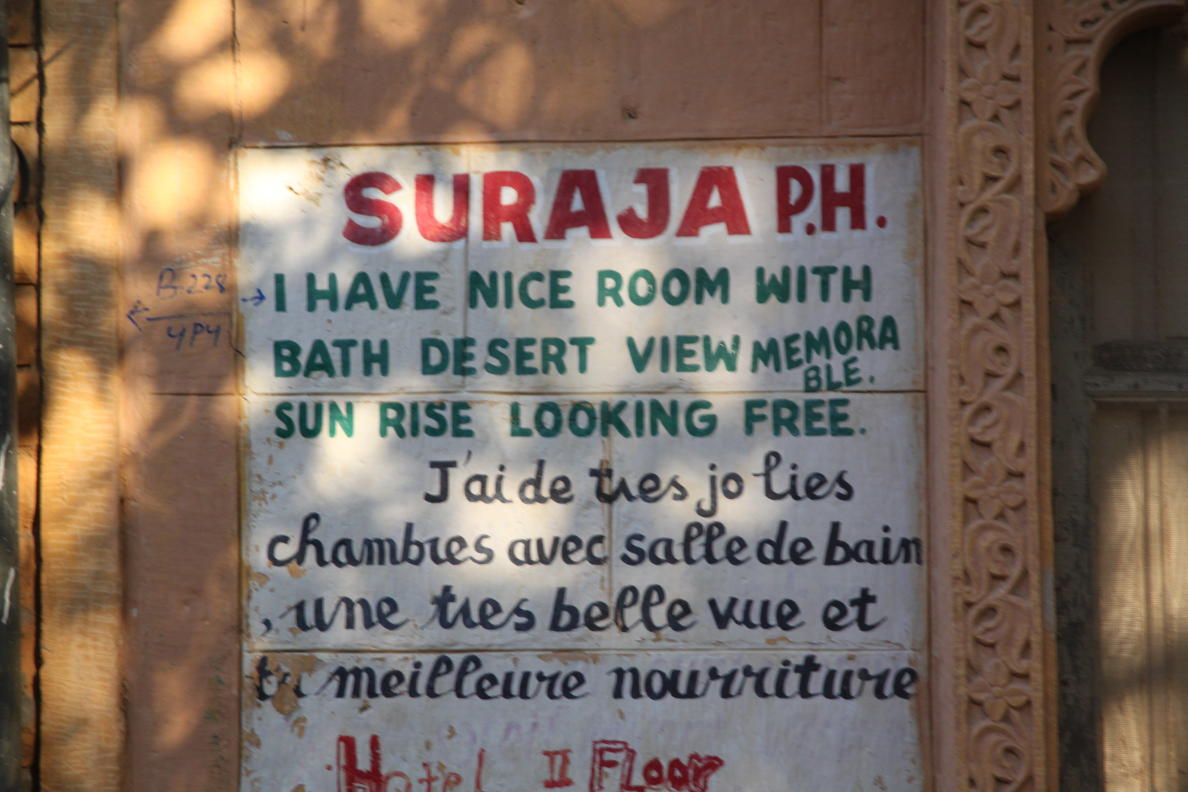 SURAJA P.H.
B.228
4P4
I HAVE NICE ROOM WITH
BATH DESERT VIEW MEMORA
BLE.
SUN RISE LOOKING FREE.
J'ai de tres jolies
chambres avec salle de bain
, une tres belle vue et
meilleure nourriture
Hotel II FLoor